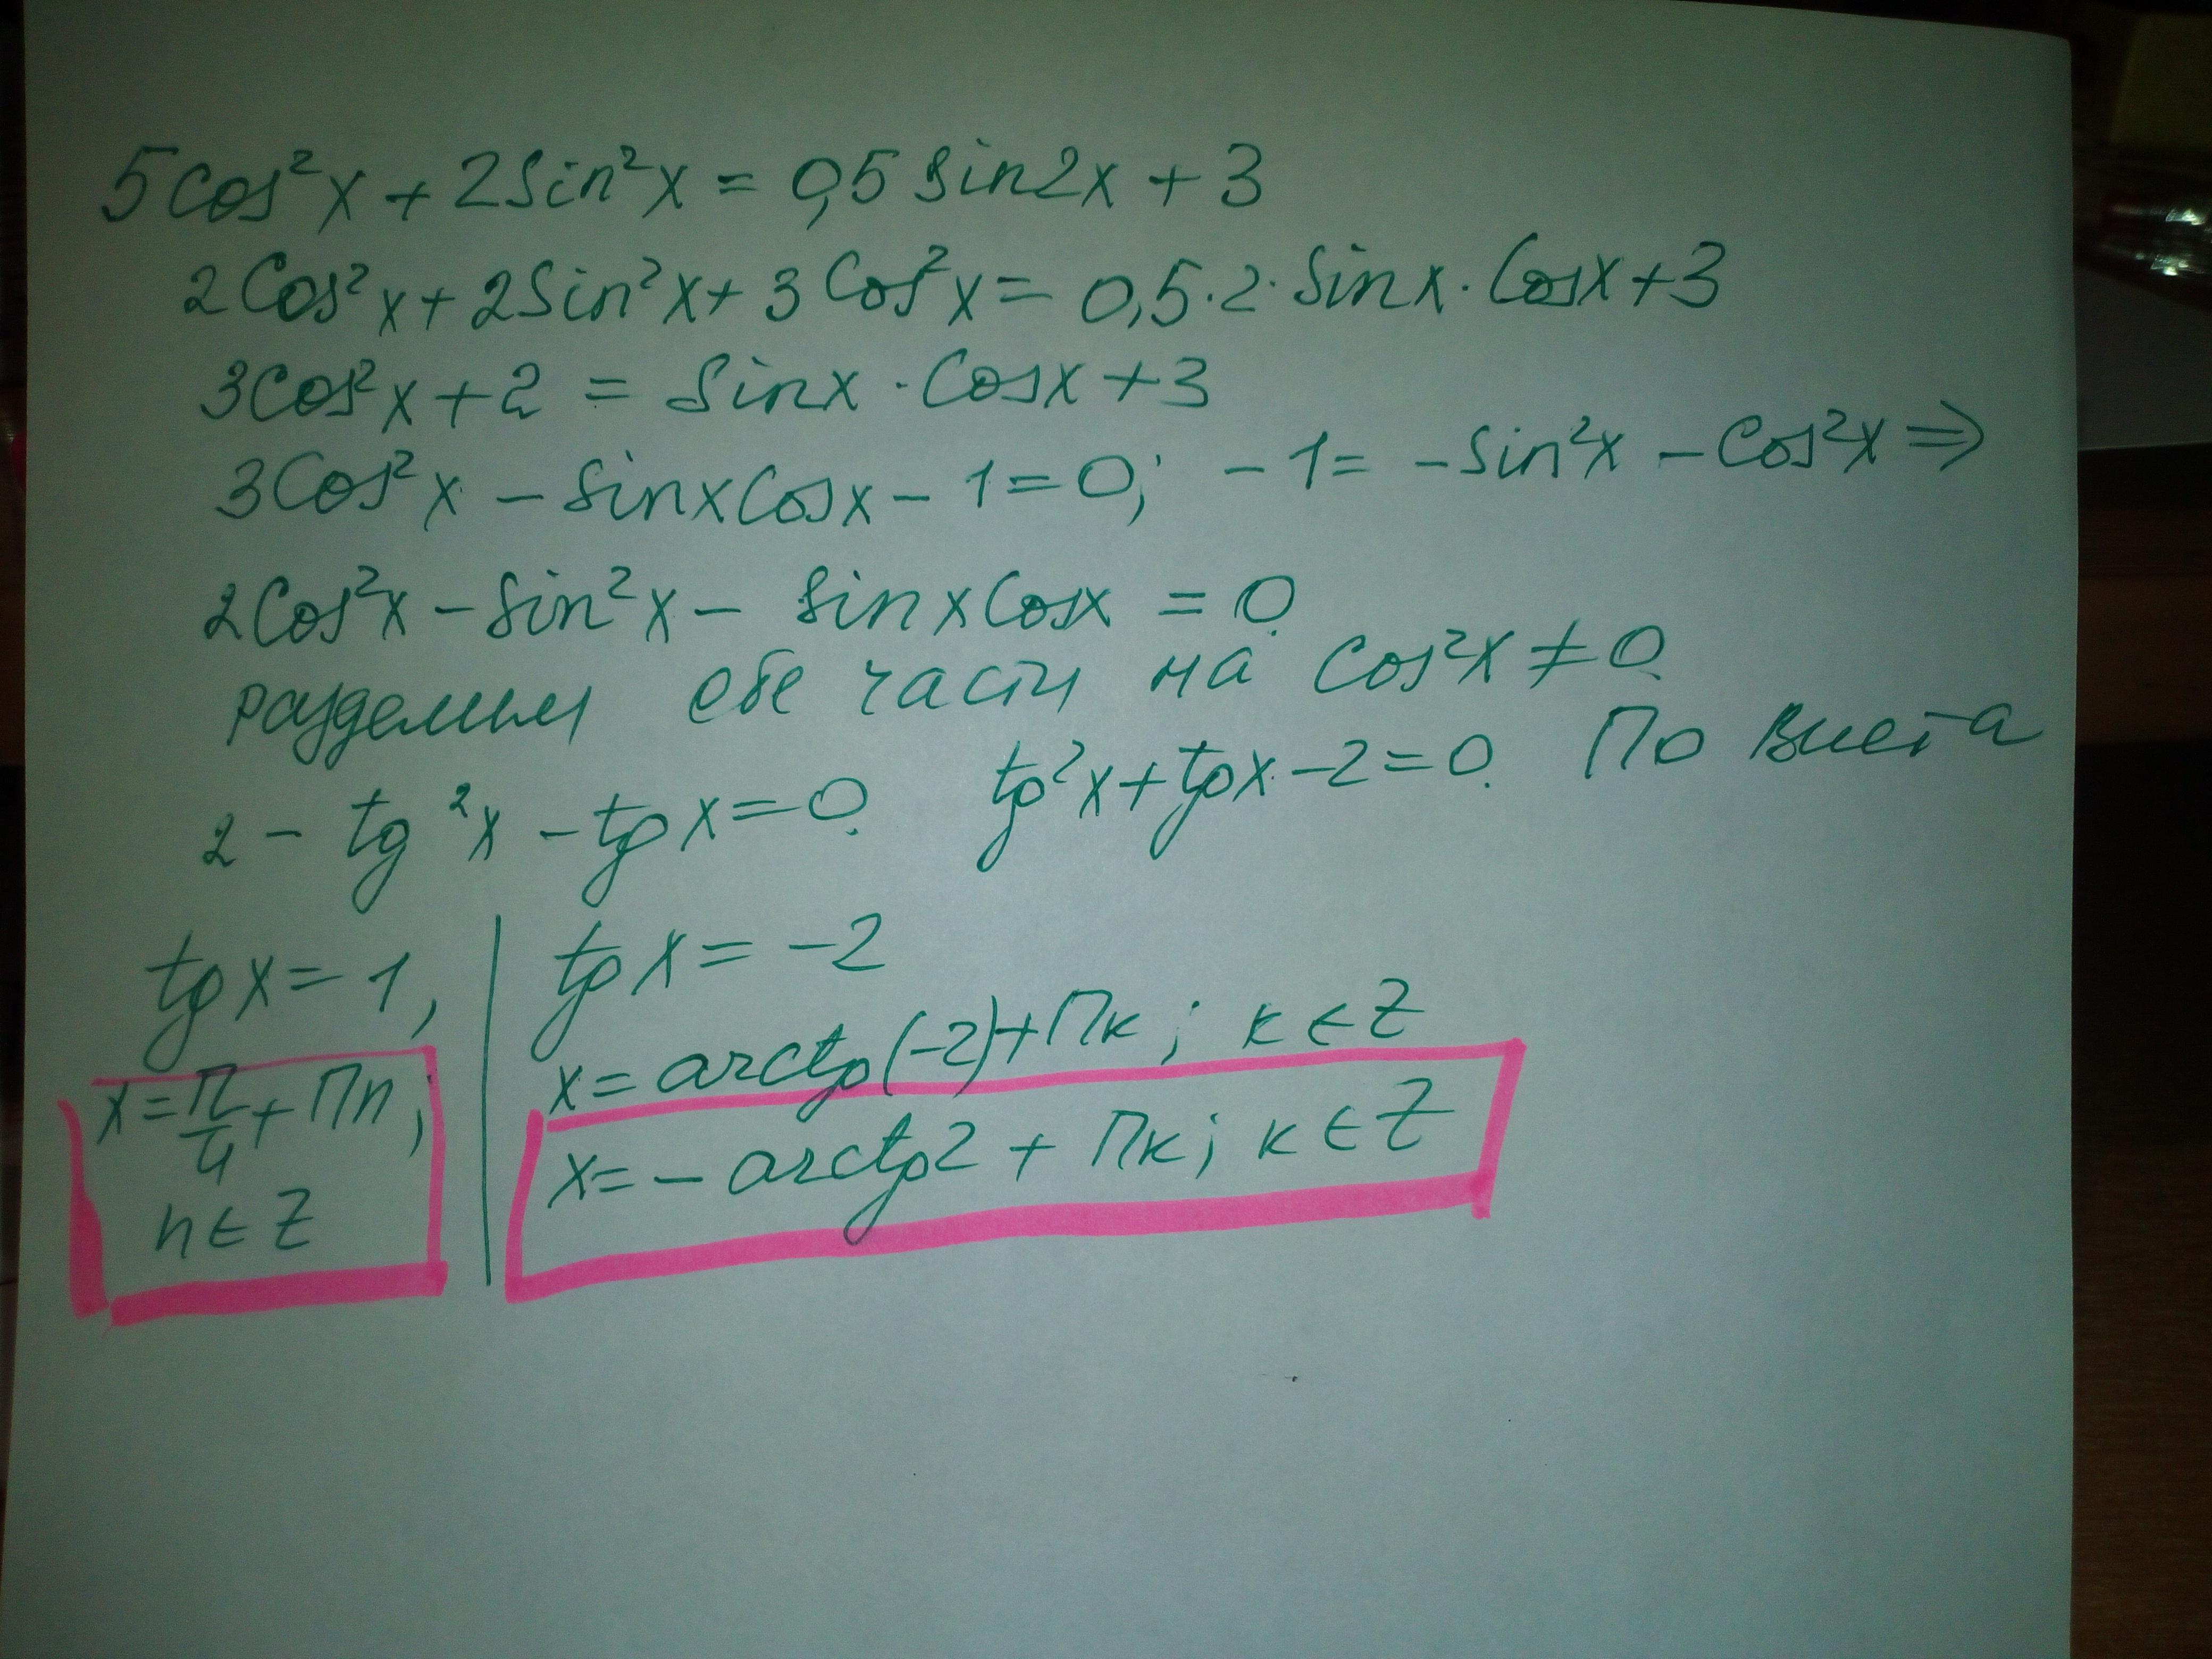 5cos²x + 2sin²x = 0,5 sin2x + 3
2cos²x + 2sin²x + 3cos²x = 0,5·2·sinx·cosx + 3
3cos²x + 2 = sinx·cosx + 3
3cos²x - sinxcosx - 1 = 0; -1 = -sin²x - cos²x ⇒
2cos²x - sin²x - sinxcosx = 0.
разделим обе части на cos²x ≠ 0.
2 - tg²x - tgx = 0. tg²x + tgx - 2 = 0. По Виета
tgx = 1,
x = π/4 + πn;
n ∈ Z
tgx = -2
x = arctg(-2) + πk; k ∈ Z
x = -arctg2 + πk; k ∈ Z